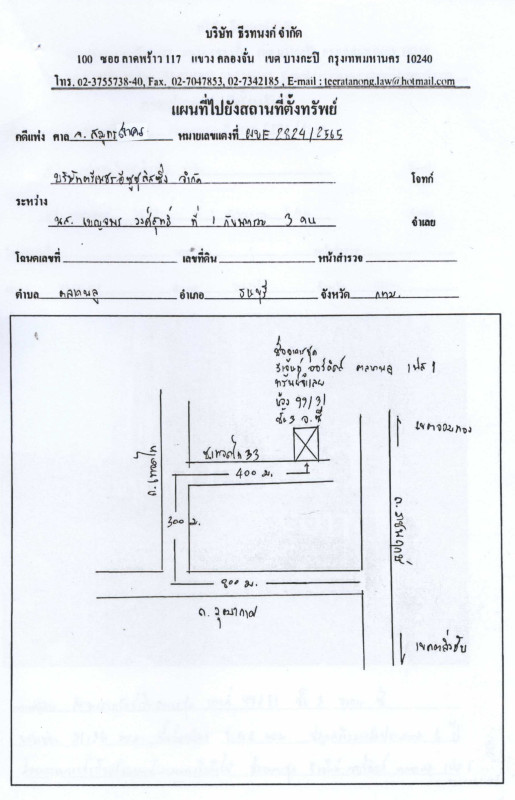 บริษัท ธีรทนงค์ จำกัด
100 ซอย ลาดพร้าว 117 แขวง คลองจั่น เขต บางกะปิ กรุงเทพมหานคร 10240
โทร. 02-3755738-40, Fax. 02-7047853, 02-7342185 , E-mail : teeratanong.law@hotmail.com
แผนที่ไปยังสถานที่ตั้งทรัพย์
คดีแพ่ง ศาล จ. สมุทรสาคร หมายเลขแดงที่ ผบE 2824/2565
บริษัทตรีเพชรอีซูซุลิสซิ่ง จำกัด โจทก์
ระหว่าง
นส. เบญจพร วงศ์สุทธิ์ ที่ 1 กับพวกรวม 3 คน จำเลย
โฉนดเลขที่ เลขที่ดิน หน้าสำรวจ
ตำบล ตลาดพลู อำเภอ ธนบุรี จังหวัด กทม.
ชื่ออาคารชุด
ตลาดพลู เฟส 1
ห้อง 99/31
ชั้น 3
เขตจอมทอง
ถ.เทอดไท
ซ.เทอดไท 33
400 ม.
300 ม.
ถ. ราชพฤกษ์
800 ม.
ถ. วุฒากาศ
เขตตลิ่งชัน